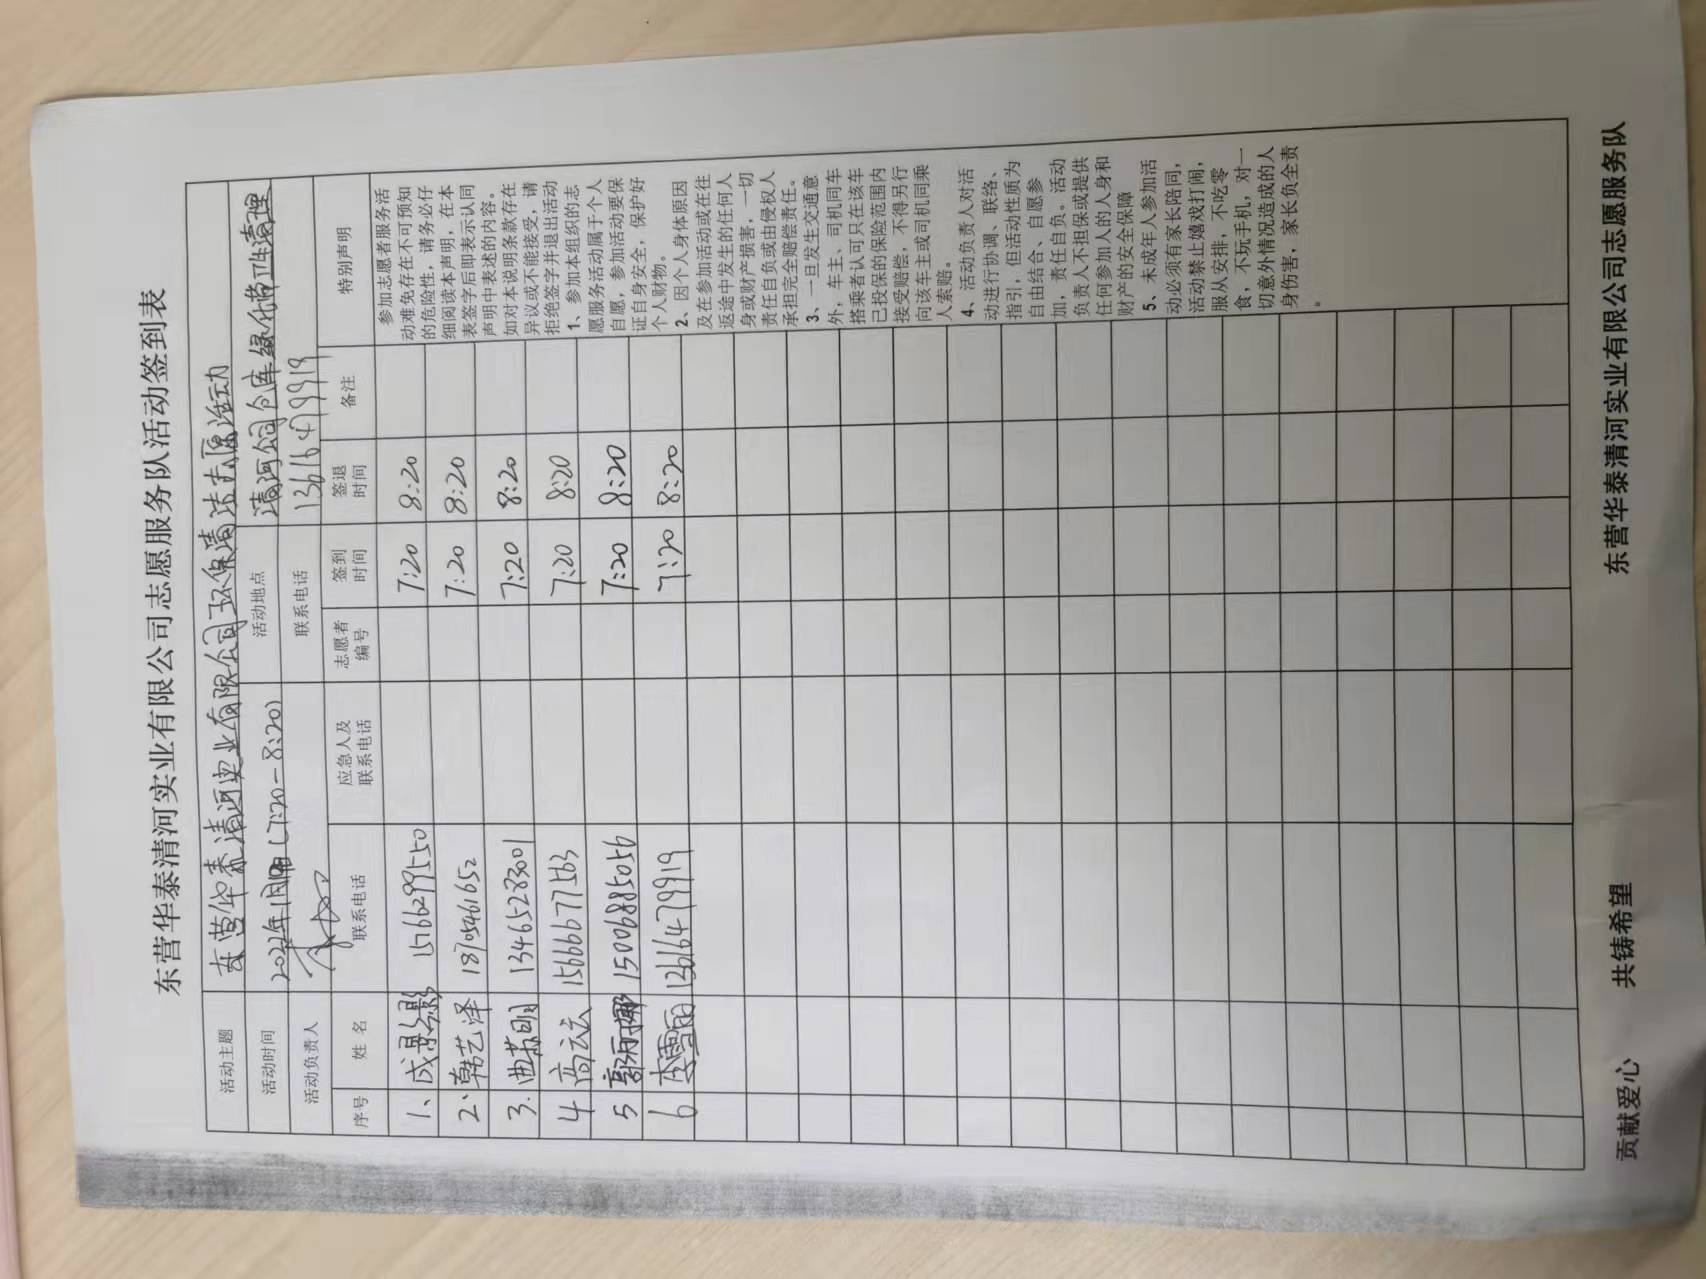 东营华泰清河实业有限公司志愿服务队活动签到表
活动主题 东营华泰清河实业有限公司环保清洁志愿活动
活动时间 (7:20-8:20) 活动地点 清河公司仓库绿化带卫生清理
活动负责人 联系电话 13616479919
序号 姓 名 联系电话 应急人及联系电话 志愿者编号 签到时间 签退时间 备注 特别声明
1、 成景影 15766299550 7:20 8:20
2、 韩艺泽 18705461652 7:20 8:20
3. 曲苏明 13465283001 7:20 8:20
4 高云云 15666677563 7:20 8:20
5 郭丹娜 15006885056 7:20 8:20
6 李雪雨 13616479919 7:20 8:20
参加志愿者服务活
动难免存在不可预知
的危险性，请务必仔
细阅读本声明，在本
表签字后即表示认同
声明中表述的内容。
如对本说明条款存在
异议或不能接受，请
拒绝签字并退出活动
1、参加本组织的志
愿服务活动属于个人
自愿，参加活动要保
证自身安全，保护好
个人财物。
2、因个人身体原因
及在参加活动或在往
返途中发生的任何人
身或财产损害，一切
责任自负或由侵权人
承担完全赔偿责任。
3、一旦发生交通意
外，车主、司机同车
搭乘者认可只在该车
已投保的保险范围内
接受赔偿，不得另行
向该车主或司机同乘
人索赔。
4、活动负责人对活
动进行协调、联络、
指引，但活动性质为
自由结合、自愿参
加，责任自负。活动
负责人不担保或提供
任何参加人的人身和
财产的安全保障
5、未成年人参加活
动必须有家长陪同，
活动禁止嬉戏打闹，
服从安排，不吃零
食，不玩手机，对一
切意外情况造成的人
身伤害，家长负全责
。
贡献爱心 共铸希望 东营华泰清河实业有限公司志愿服务队